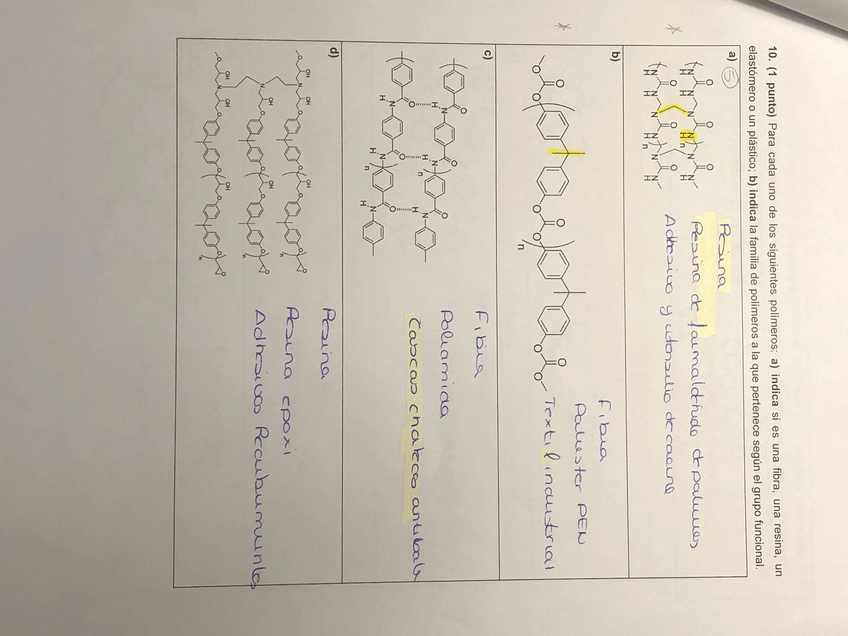 10. (1 punto) Para cada uno de los siguientes polímeros: a) indica si es una fibra, una resina, un
elastómero o un plástico; b) indica la familia de polímeros a la que pertenece según el grupo funcional.
a)
5
Resina
Resina de formaldehido
Adhesivo y utensilio de cocina
b)
Fibra
Poliester PEN
Textil industrial
c)
Fibra
Poliamida
Cascos chaleco antibala
d)
Resina
Resina epoxi
Adhesivos Recubrimientos